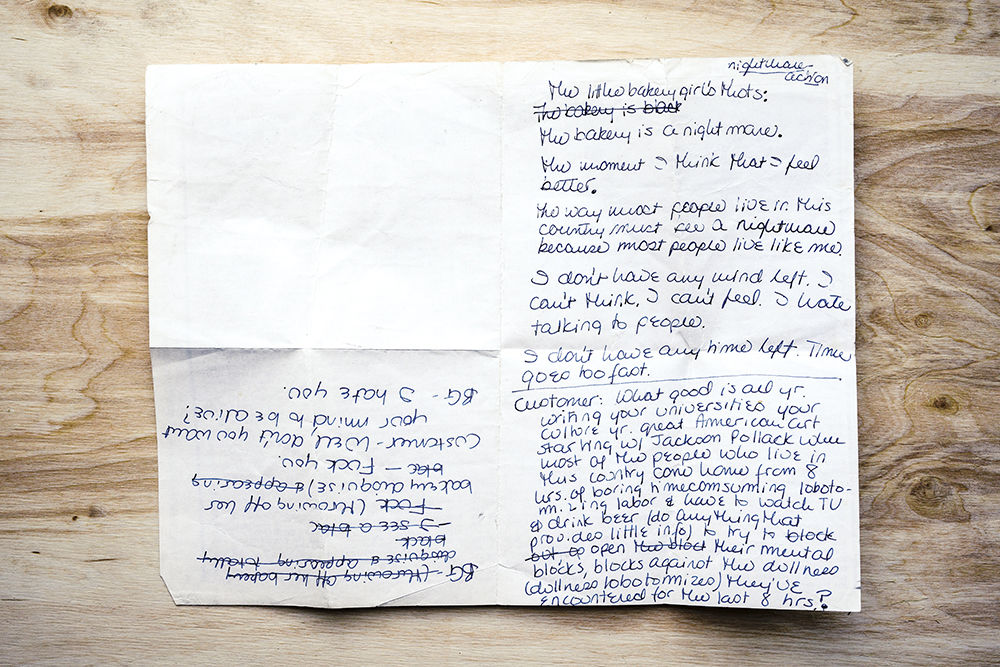 nightmare
action
The little bakery girl's thots:
The bakery is black
The bakery is a night mare.
The moment I think that I feel
better.
The way most people live in this
country must be a nightmare
because most people live like me.
I don't have any mind left. I
can't think, I can't feel. I hate
talking to people.
I don't have any time left. Time
goes too fast.
Customer: What good is all yr.
writing your universities your
culture yr. great American art
starting w/ Jackson Pollack when
most of the people who live in
this country come home from 8
hrs. of boring timeconsuming loboto-
mizing labor & have to watch TV
& drink beer (do anything that
provides little info) to try to block
out op open the bloct their mental
blocks, blocks against the dullness
(dullness lobotomizes) they've
encountered for the last 8 hrs.?
BG - (throwing off her bakery
disguise & appearing totally
black
I see a blac
Fuck (throwing off her
bakery disguise) & appearing
blac - Fuck you.
Customer - Well, don't you want
your mind to be alive?
BG - I hate you.